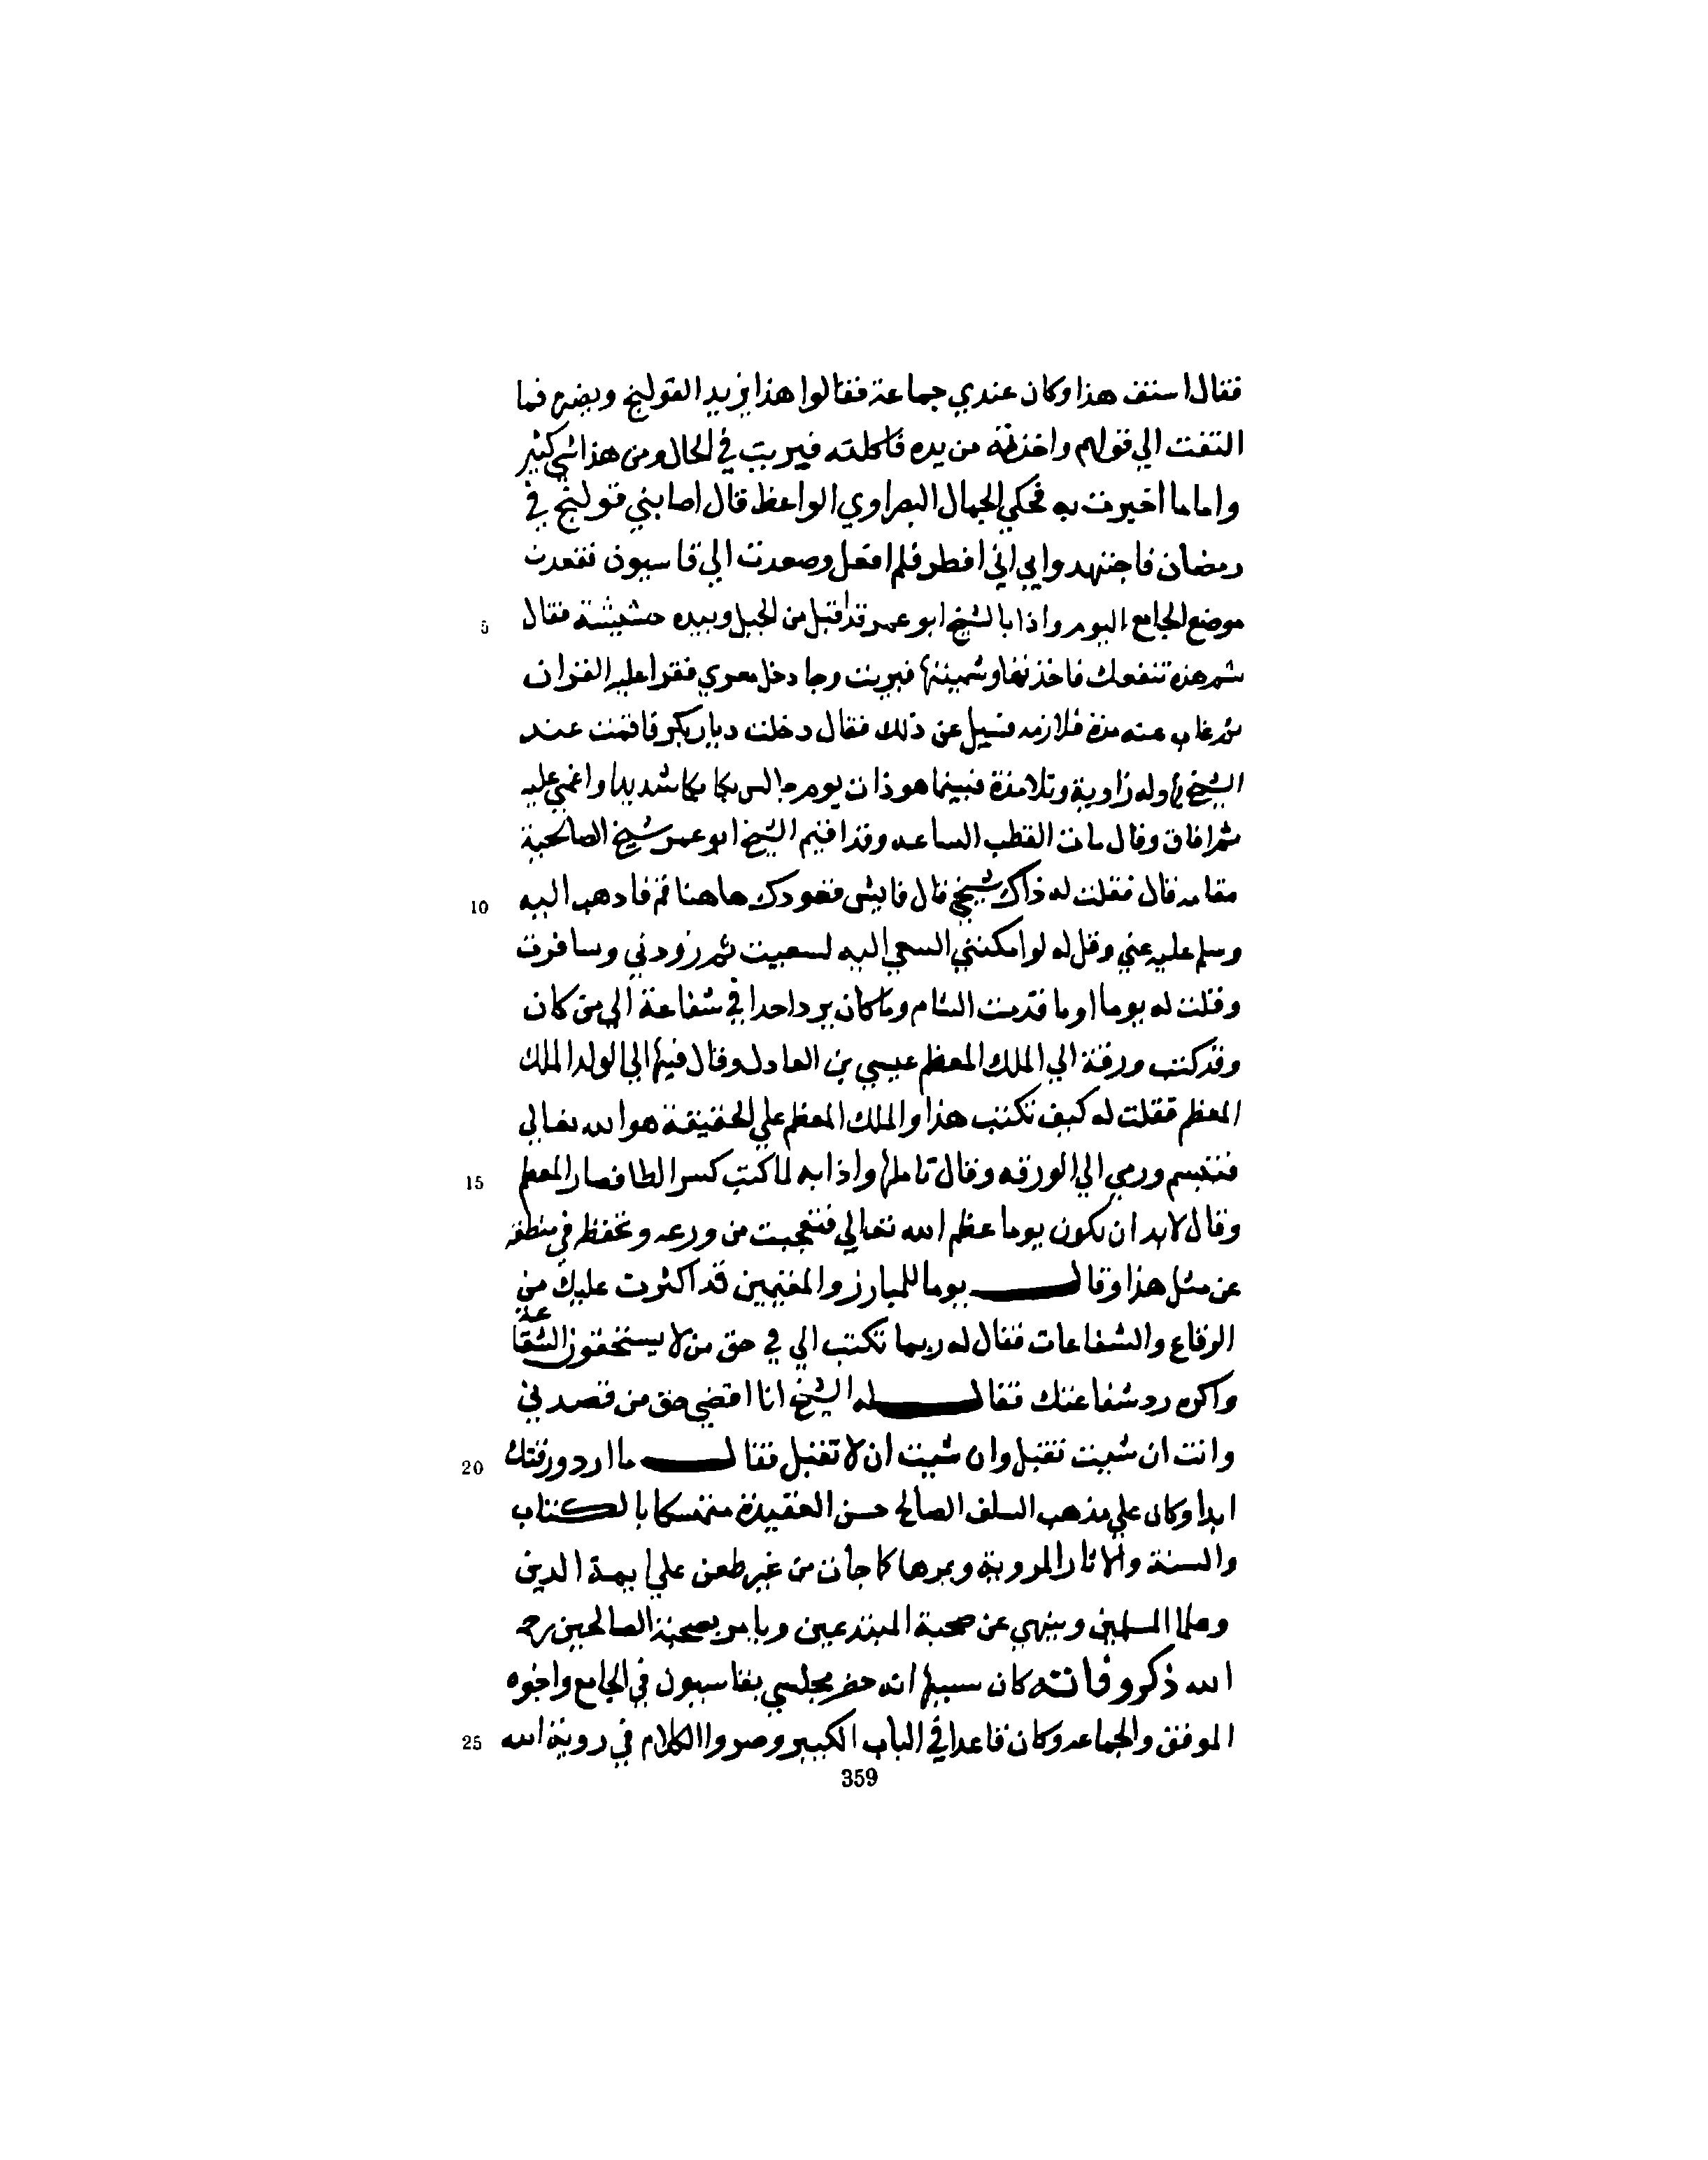 فقال استف هذا وكان عندي جماعة فقالوا هذا يزيد القولنج ويضره فما
التفت الي قولهم واخذته من يده فاكلته فبريت في الحال ومن هذا شي كثير
واما ما اخبرت به فحكي الجمال البصراوي الواعظ قال اصابني قولنج في
رمضان فاجتهدوا بي اني افطر فلم افعل وصعدت الي قاسيون فقعدت
موضع الجامع اليوم واذا بالشيخ ابو عمر قد اقبل من الجبل وبيده حشيشة فقال
5
شم هذه تنفعك فاخذتها وشميتها فبريت وجا رجل مغربي فقرا عليه القران
ثم غاب عنه مدة فلازمه فسيل عن ذلك فقال دخلت ديار بكر فاقمت عند
الشيخ بها وله زاوية وتلامذة فبينما هو ذات يوم جالس بكا بكا شديدا واغمي عليه
ثم افاق وقال مات القطب الساعه وقد اقيم الشيخ ابو عمر شيخ الصالحية
مقامه قال فقلت له ذاك شيخي قال فايش قعودك هاهنا قم فادهب اليه
10
وسلم عليه عني وقل له لو امكنني السعي اليه لسعيت ثم زودني وسافرت
وقلت له يوما اوما قدمت الشام وما كان يرد احدا في شفاعة الي من كان
وقد كتب ورقة الي الملك المعظم عيسي بن العادل وقال فيها الي الولد الملك
المعظم فقلت له كيف تكتب هذا والملك المعظم علي الحقيقة هو الله تعالي
فتبسم ورمي الي الورقه وقال تاملها واذا به لما كتب كسر الظا فصار المعظم
15
وقال لا بد ان يكون يوما عظم الله تعالي فتعجبت من ورعه وتحفظه في منطقه
عن مثل هذا وقال يوما للمبارز والمغتمين قد اكثرت عليك من
الرقاع والشفاعات فقال له ربما تكتب الي في حق من لا يستحقون الشفاعة
واكره رد شفاعتك فقال له الشيخ انا اقضي حق من قصدني
وانت ان شيت تقبل وان شيت ان لا تقبل فقال ما ارد ورقتك
20
ابدا وكان علي مذهب السلف الصالح حسن العقيدة متمسكا بالكتاب
والسنة والاثار المروية ويمرها كما جات من غير طعن علي ايمة الدين
وعلما المسلمين وينهي عن صحبة المبتدعين ويامر بصحبة الصالحين رحمه
الله ذكر وفاته كان سببها انه حضر مجلسي بقاسيون في الجامع واخوه
الموفق والجماعه وكان قاعدا في الباب الكبير وصروا الكلام في روية الله
25
359